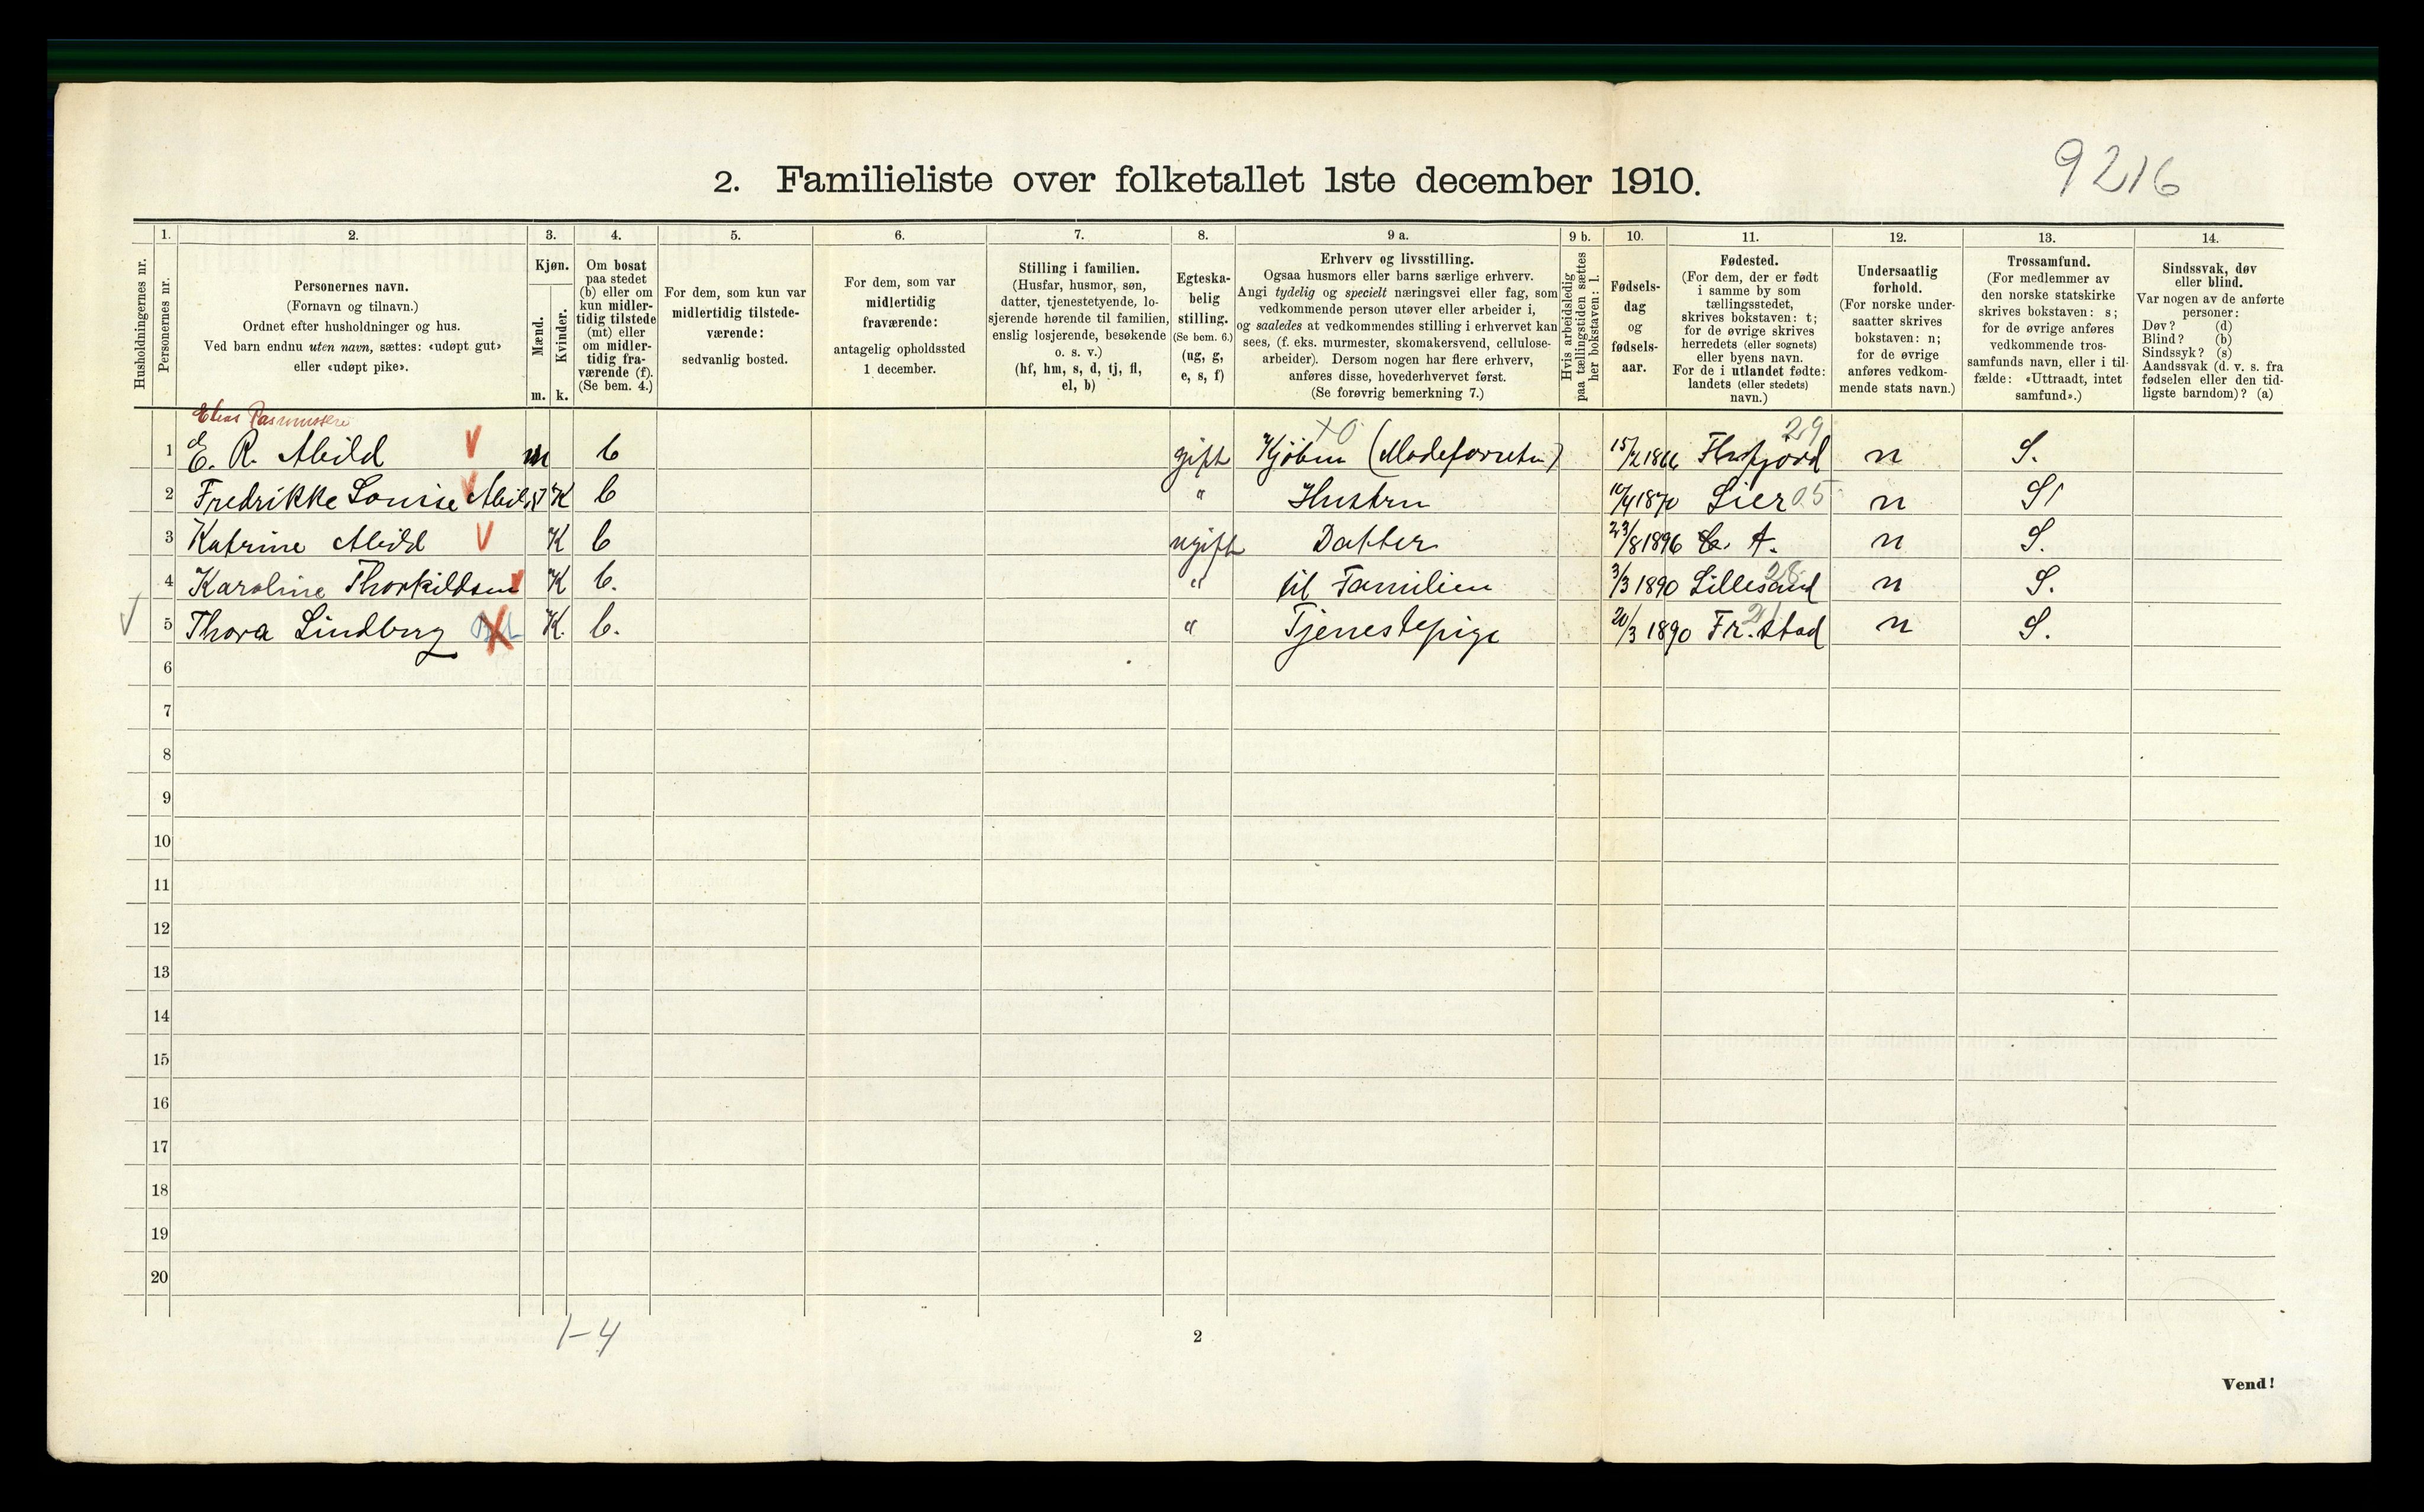 9216
2. Familieliste over folketallet 1ste december 1910.
1. 2. 3. 4. 5. 6. 7. 8. 9 a. 9 b. 10. 11. 12. 13. 14.
Husholdningernes nr.
Personernes nr.
Personernes navn.
(Fornavn og tilnavn.)
Ordnet efter husholdninger og hus.
Ved barn endnu uten navn, sættes: «udøpt gut»
eller «udøpt pike».
Kjøn.
Mænd.
Kvinder.
m. k.
Om bosat
paa stedet
(b) eller om
kun midler-
tidig tilstede
(mt) eller
om midler-
tidig fra-
værende (f).
(Se bem. 4.)
For dem, som kun var
midlertidig tilstede-
værende:
sedvanlig bosted.
For dem, som var
midlertidig
fraværende:
antagelig opholdssted
1 december.
Stilling i familien.
(Husfar, husmor, søn,
datter, tjenestetyende, lo-
sjerende hørende til familien,
enslig losjerende, besøkende
o. s. v.)
(hf, hm, s, d, tj, fl,
el, b)
Egteska-
belig
stilling.
(Se bem. 6.)
(ug, g,
e, s, f)
Erhverv og livsstilling.
Ogsaa husmors eller barns særlige erhverv.
Angi tydelig og specielt næringsvei eller fag, som
vedkommende person utøver eller arbeider i,
og saaledes at vedkommendes stilling i erhvervet kan
sees, (f. eks. murmester, skomakersvend, cellulose-
arbeider). Dersom nogen har flere erhverv,
anføres disse, hovederhvervet først.
(Se forøvrig bemerkning 7.)
Hvis arbeidsledig
paa tællingstiden sættes
her bokstaven: l.
Fødsels-
dag
og
fødsels-
aar.
Fødested.
(For dem, der er født
i samme by som
tællingsstedet,
skrives bokstaven: t;
for de øvrige skrives
herredets (eller sognets)
eller byens navn.
For de i utlandet fødte:
landets (eller stedets)
navn.)
Undersaatlig
forhold.
(For norske under-
saatter skrives
bokstaven: n;
for de øvrige
anføres vedkom-
mende stats navn.)
Trossamfund.
(For medlemmer av
den norske statskirke
skrives bokstaven: s;
for de øvrige anføres
vedkommende tros-
samfunds navn, eller i til-
fælde: «Uttraadt, intet
samfund».)
Sindssvak, døv
eller blind.
Var nogen av de anførte
personer:
Døv? (d)
Blind? (b)
Sindssyk? (s)
Aandssvak (d. v. s. fra
fødselen eller den tid-
ligste barndom)? (a)
Elias Rasmussen
1 E. R. Abild m b gift Kjøbm (Modeforretn) 15/2 1866 29 n S.
2 Fredrikke Lousie Abild K b " Hustru 10/4 1870 Lier 05 n S
3 Katrine Abild K b ugift Datter 23/8 1896 t. n S.
4 Karoline Thorkildsen K b. " til Familien 3/3 1890 Lillesand 28 n S.
5 Thora Lindberg K. b. " Tjenestepige 20/3 1890 Fr.stad n S.
6
7
8
9
10
11
12
13
14
15
16
17
18
19
20
1-4
2
Vend!